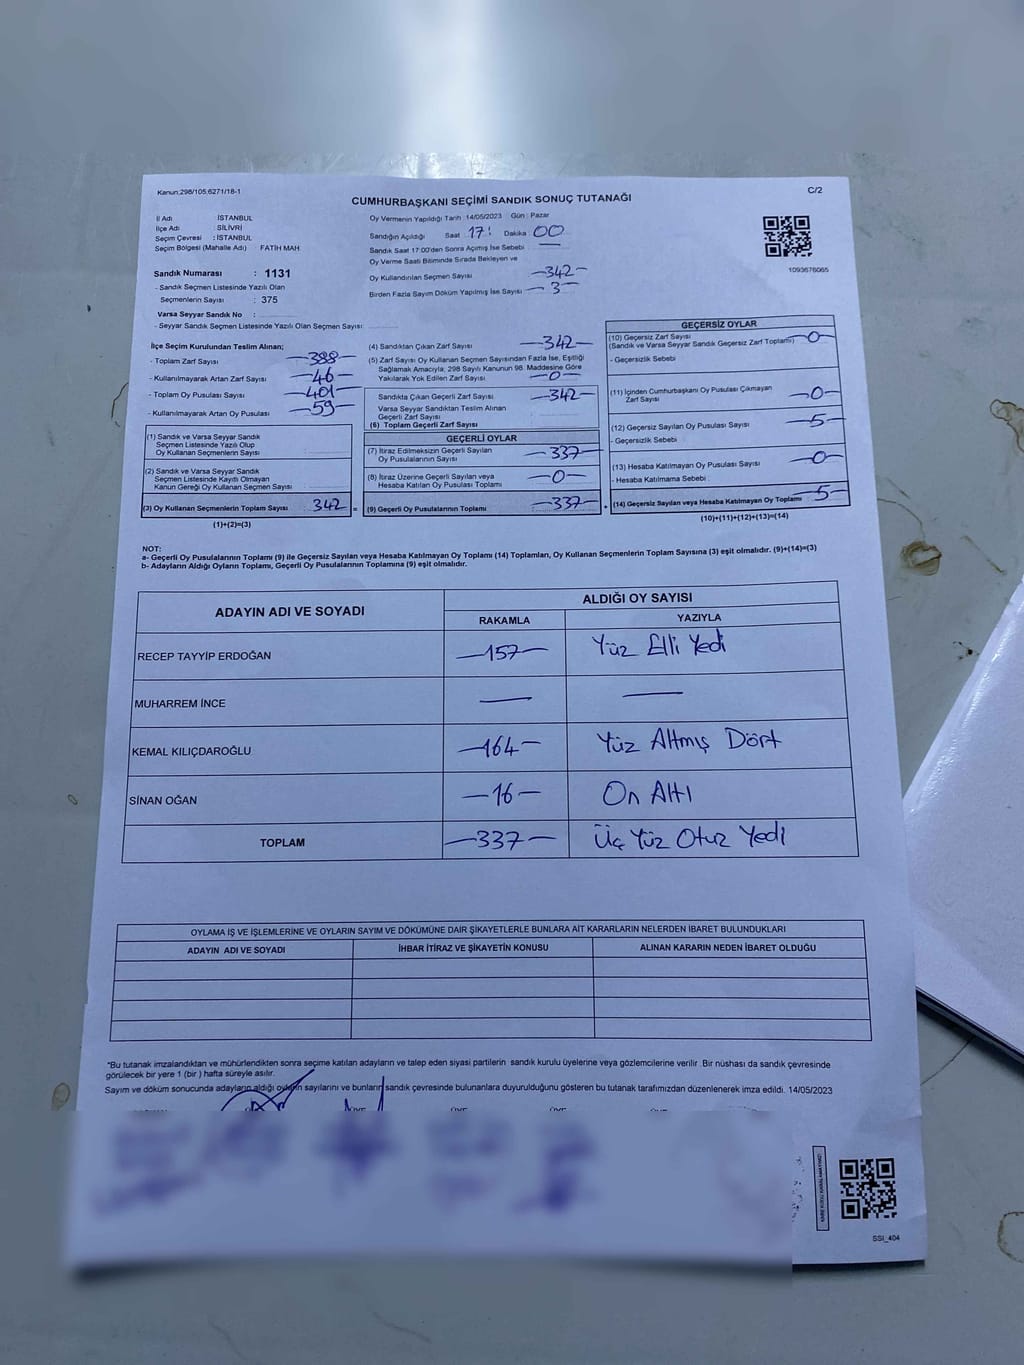 Kanun:298/105;6271/18-1
C/2
CUMHURBAŞKANI SEÇİMİ SANDIK SONUÇ TUTANAĞI
İl Adı : İSTANBUL
İlçe Adı : SİLİVRİ
Seçim Çevresi : İSTANBUL
Seçim Bölgesi (Mahalle Adı) FATİH MAH
Sandık Numarası : 1131
- Sandık Seçmen Listesinde Yazılı Olan
Seçmenlerin Sayısı : 375
Varsa Seyyar Sandık No :
- Seyyar Sandık Seçmen Listesinde Yazılı Olan Seçmen Sayısı:
Oy Vermenin Yapıldığı Tarih :14/05/2023 Gün : Pazar
Sandığın Açıldığı Saat 17: Dakika 00
Sandık Saat 17:00'den Sonra Açılmış İse Sebebi : —
Oy Verme Saati Bitiminde Sırada Bekleyen ve
Oy Kullandırılan Seçmen Sayısı —342—
Birden Fazla Sayım Döküm Yapılmış İse Sayısı —3—
1093676065
İlçe Seçim Kurulundan Teslim Alınan;
- Toplam Zarf Sayısı —388—
- Kullanılmayarak Artan Zarf Sayısı —46—
- Toplam Oy Pusulası Sayısı —401—
- Kullanılmayarak Artan Oy Pusulası —59—
(1) Sandık ve Varsa Seyyar Sandık
Seçmen Listesinde Yazılı Olup
Oy Kullanan Seçmenlerin Sayısı :
(2) Sandık ve Varsa Seyyar Sandık
Seçmen Listesinde Kayıtlı Olmayan
Kanun Gereği Oy Kullanan Seçmen Sayısı :
(3) Oy Kullanan Seçmenlerin Toplam Sayısı : 342 =
(1)+(2)=(3)
(4) Sandıktan Çıkan Zarf Sayısı —342—
(5) Zarf Sayısı Oy Kullanan Seçmen Sayısından Fazla İse, Eşitliği
Sağlamak Amacıyla; 298 Sayılı Kanunun 98. Maddesine Göre
Yakılarak Yok Edilen Zarf Sayısı —0—
Sandıkta Çıkan Geçerli Zarf Sayısı —342—
Varsa Seyyar Sandıktan Teslim Alınan
Geçerli Zarf Sayısı
(6) Toplam Geçerli Zarf Sayısı
GEÇERLİ OYLAR
(7) İtiraz Edilmeksizin Geçerli Sayılan
Oy Pusulalarının Sayısı —337—
(8) İtiraz Üzerine Geçerli Sayılan veya
Hesaba Katılan Oy Pusulası Toplamı —0—
(9) Geçerli Oy Pusulalarının Toplamı —337— +
GEÇERSİZ OYLAR
(10) Geçersiz Zarf Sayısı
(Sandık ve Varsa Seyyar Sandık Geçersiz Zarf Toplamı) —0—
- Geçersizlik Sebebi
(11) İçinden Cumhurbaşkanı Oy Pusulası Çıkmayan
Zarf Sayısı —0—
(12) Geçersiz Sayılan Oy Pusulası Sayısı —5—
- Geçersizlik Sebebi
(13) Hesaba Katılmayan Oy Pusulası Sayısı —0—
- Hesaba Katılmama Sebebi :
(14) Geçersiz Sayılan veya Hesaba Katılmayan Oy Toplamı 5—
(10)+(11)+(12)+(13)=(14)
NOT:
a- Geçerli Oy Pusulalarının Toplamı (9) ile Geçersiz Sayılan veya Hesaba Katılmayan Oy Toplamı (14) Toplamları, Oy Kullanan Seçmenlerin Toplam Sayısına (3) eşit olmalıdır. (9)+(14)=(3)
b- Adayların Aldığı Oyların Toplamı, Geçerli Oy Pusulalarının Toplamına (9) eşit olmalıdır.
ADAYIN ADI VE SOYADI ALDIĞI OY SAYISI
RAKAMLA YAZIYLA
RECEP TAYYİP ERDOĞAN —157— Yüz Elli Yedi
MUHARREM İNCE — —
KEMAL KILIÇDAROĞLU —164— Yüz Altmış Dört
SİNAN OĞAN —16— On Altı
TOPLAM —337— Üç Yüz Otuz Yedi
OYLAMA İŞ VE İŞLEMLERİNE VE OYLARIN SAYIM VE DÖKÜMÜNE DAİR ŞİKAYETLERLE BUNLARA AİT KARARLARIN NELERDEN İBARET BULUNDUKLARI
ADAYIN ADI VE SOYADI İHBAR İTİRAZ VE ŞİKAYETİN KONUSU ALINAN KARARIN NEDEN İBARET OLDUĞU
"Bu tutanak imzalandıktan ve mühürlendikten sonra seçime katılan adayların ve talep eden siyasi partilerin sandık kurulu üyelerine veya gözlemcilerine verilir. Bir nüshası da sandık çevresinde
görülecek bir yere 1 (bir ) hafta süreyle asılır.
Sayım ve döküm sonucunda adayların aldığı oyların sayılarını ve bunların sandık çevresinde bulunanlara duyurulduğunu gösteren bu tutanak tarafımızdan düzenlenerek imza edildi. 14/05/2023
SSI_404